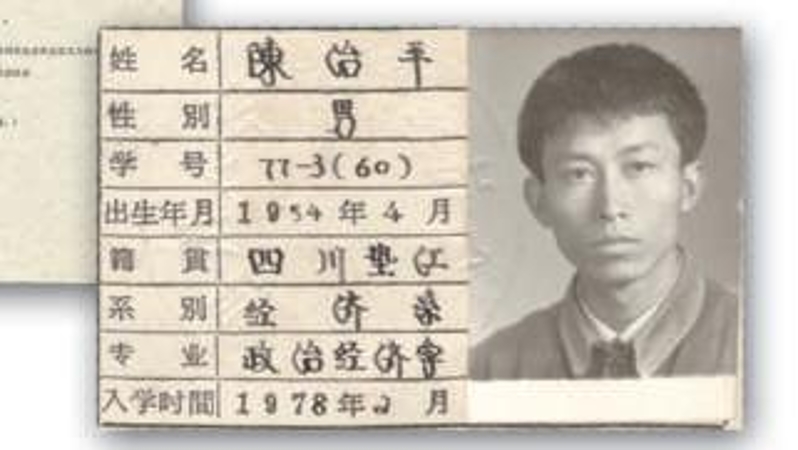 姓 名 陳治平
性 别 男
学 号 77-3(60)
出生年月 1954年4月
籍 貫 四川垫江
系 别 经济系
专 业 政治经济学
入学时間 1978年2月